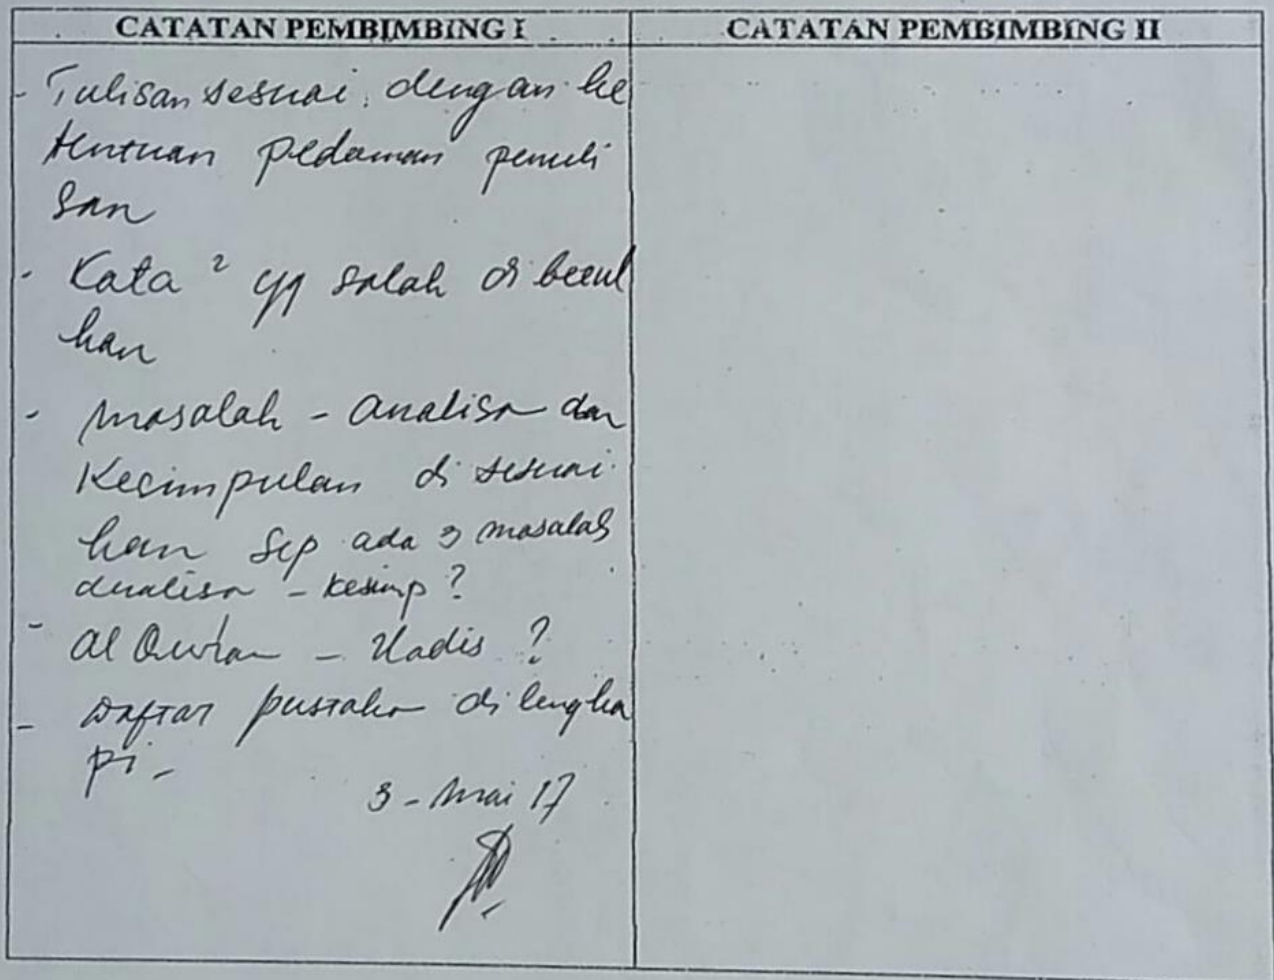 CATATAN PEMBIMBING I
CATATAN PEMBIMBING II
- Tulisan sesuai dengan ke
tentuan pedoman penuli
san
- Kata ² yg salah di betul
kan
- Masalah - analisa dan
Kesimpulan di sesuai
kan sep ada 3 masalah
analisa - kesimp ?
- Al Qur'an - Hadis ?
- Daftar pustaka di lengka
pi -
3 - Mai 17